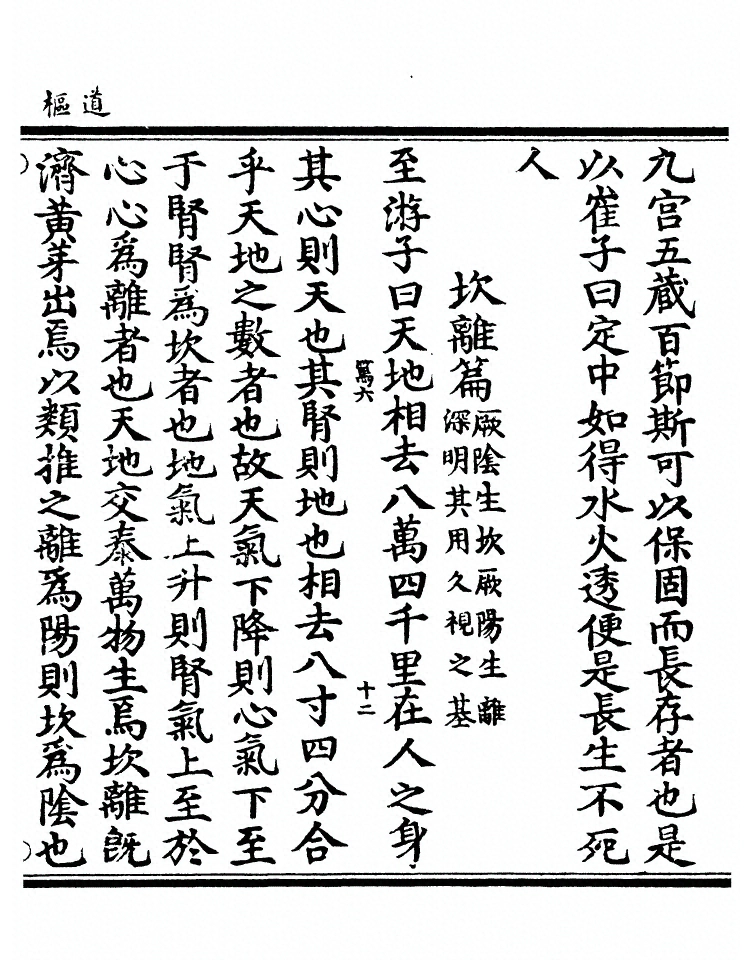 道樞
九宫五藏百節斯可以保固而長存者也是
以崔子曰定中如得水火透便是長生不死
人
坎離篇厥陰生坎厥陽生離
深明其用久視之基
至游子曰天地相去八萬四千里在人之身
篤六
十二
其心則天也其腎則地也相去八寸四分合
乎天地之數者也故天氣下降則心氣下至
于腎腎爲坎者也地氣上升則腎氣上至於
心心爲離者也天地交泰萬物生焉坎離旣
濟黃芽出焉以類推之離爲陽則坎爲陰也